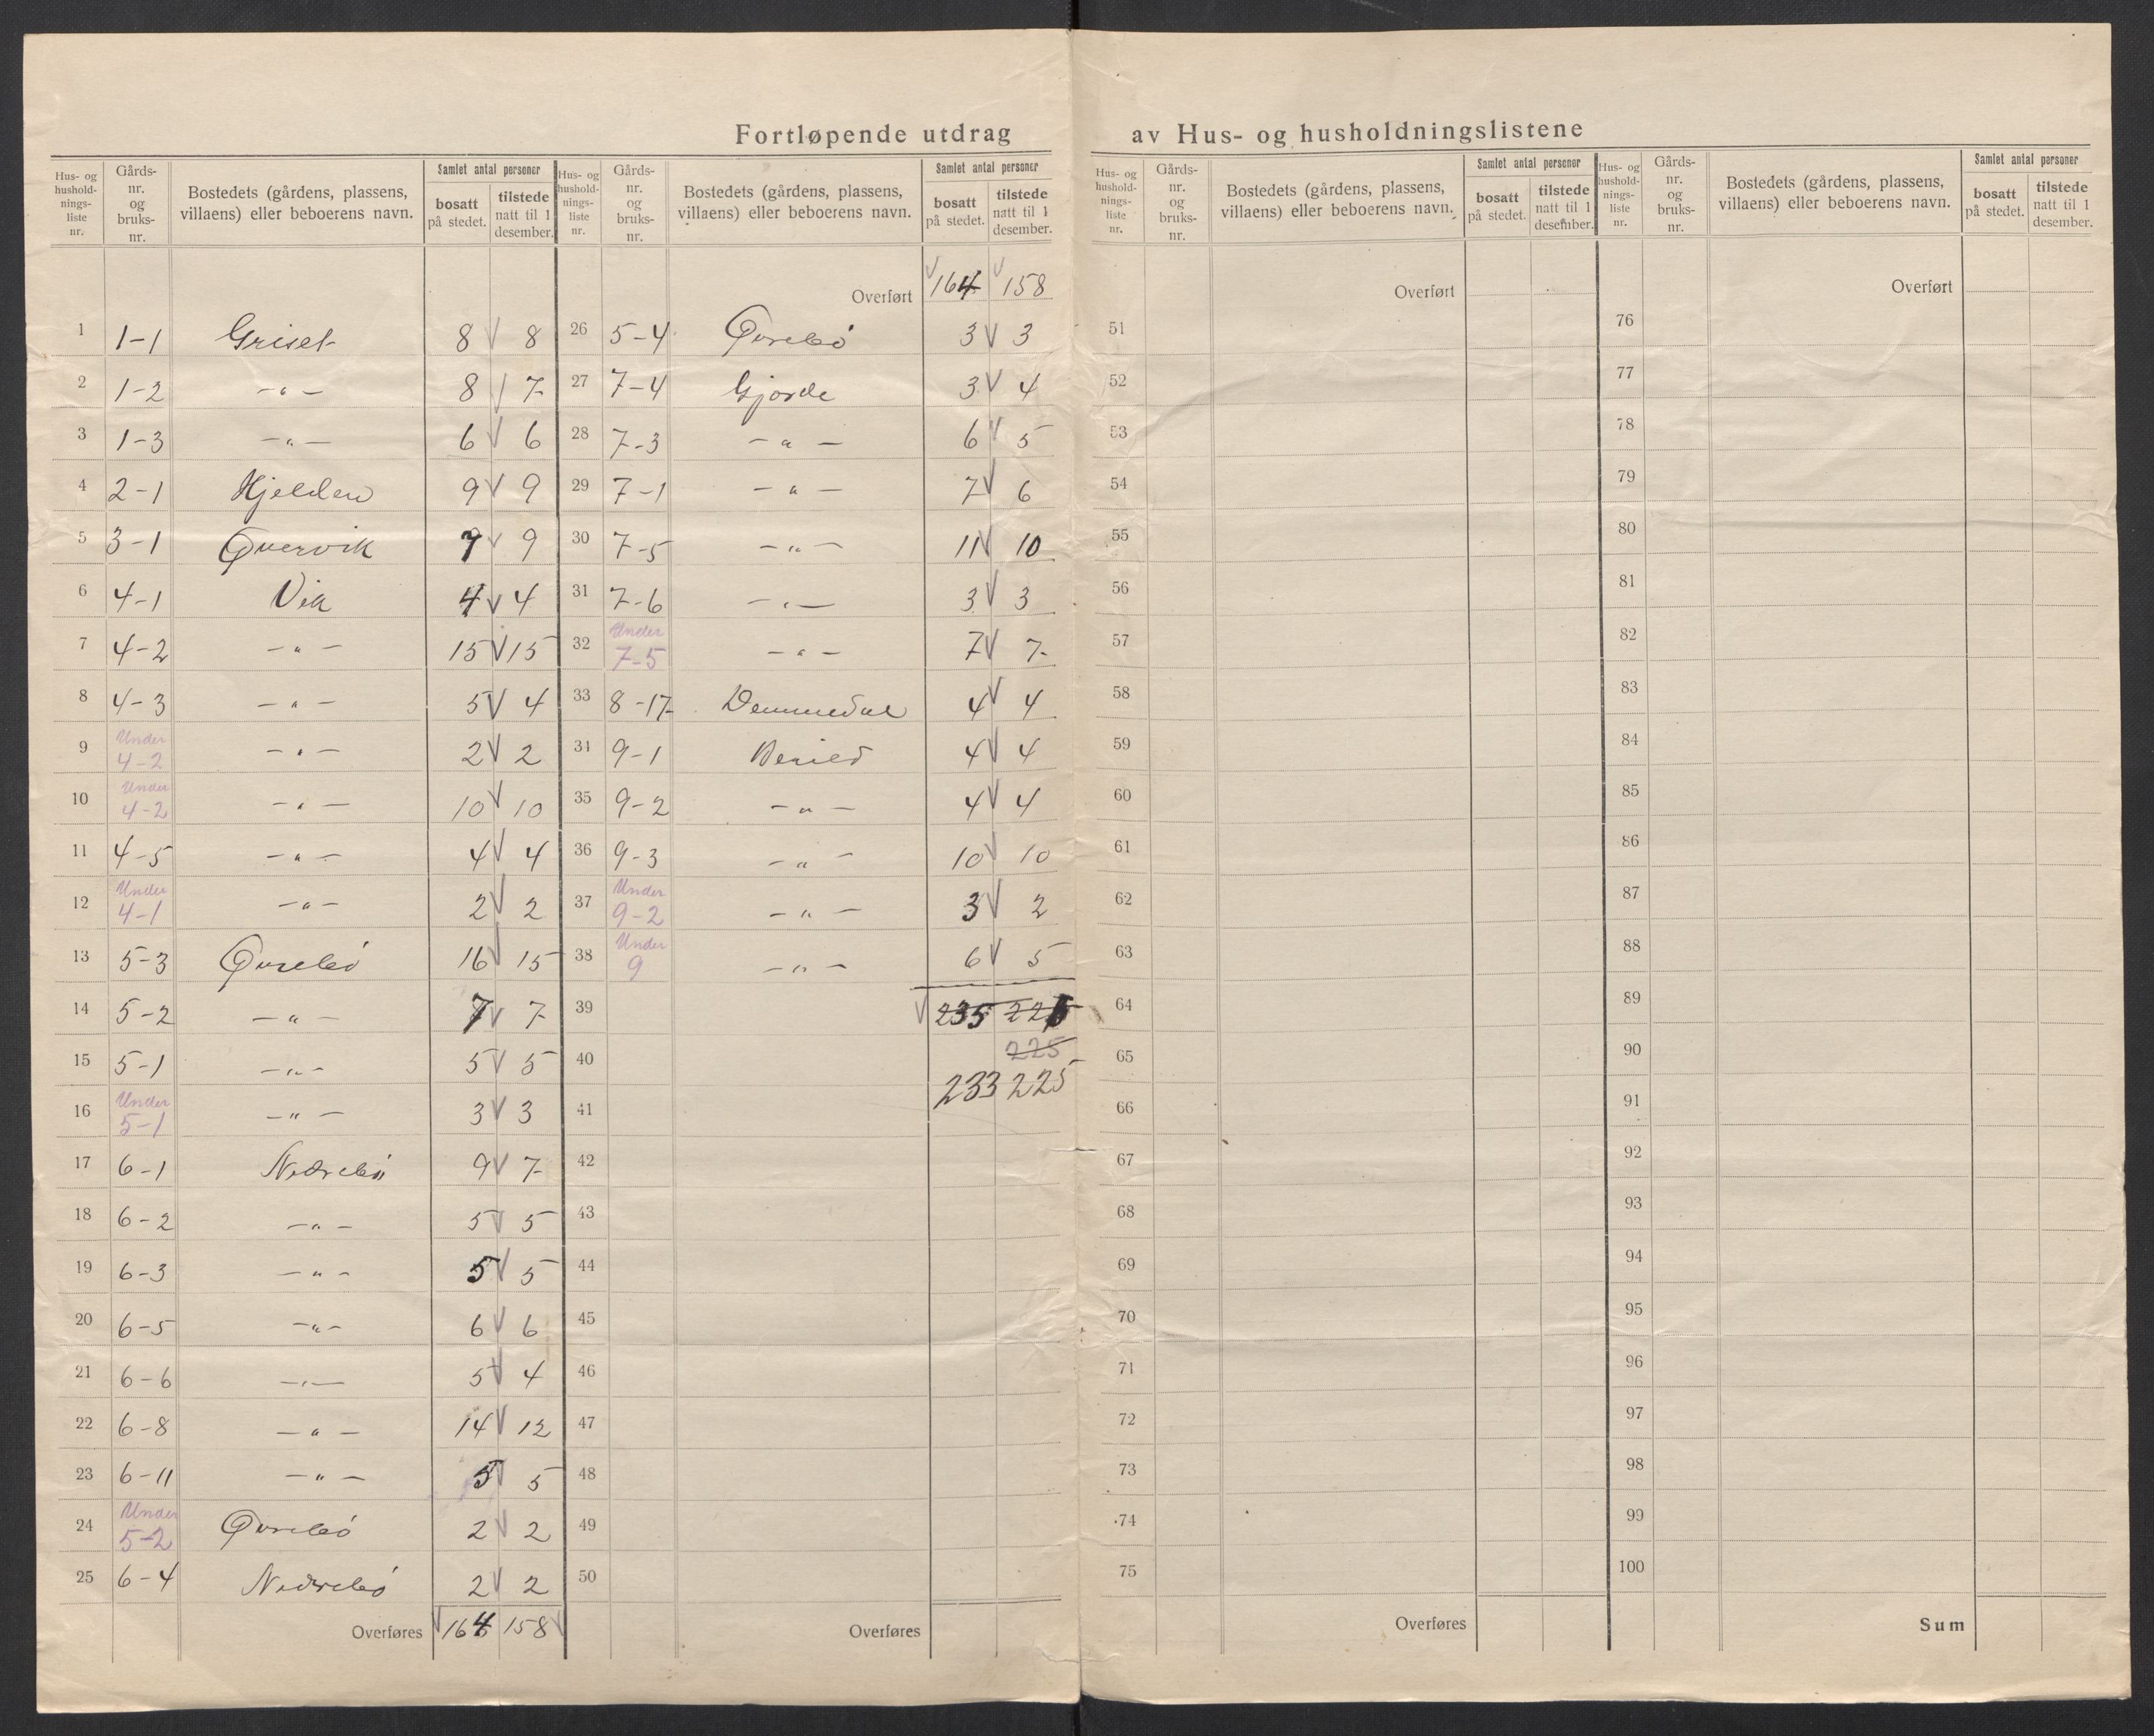 Fortløpende utdrag av Hus- og husholdningslistene
Hus- og hushold-nings-liste nr. | Gårds-nr. og bruks-nr. | Bostedets (gårdens, plassens, villaens) eller beboerens navn. | Samlet antal personer | bosatt på stedet. | tilstede natt til 1 desember.
1 1-1 Griset 8 8
2 1-2 -"- 8 7
3 1-3 -"- 6 6
4 2-1 Hjelden 9 9
5 3-1 9 9
6 4-1 Vik 4 4
7 4-2 -"- 15 15
8 4-3 -"- 5 4
9 Under 4-2 -"- 2 2
10 Under 4-2 -"- 10 10
11 4-5 -"- 4 4
12 Under 4-1 -"- 2 2
13 5-3 Øvrebö 16 15
14 5-2 -"- 7 7
15 5-1 -"- 5 5
16 Under 5-1 -"- 3 3
17 6-1 Nedrebö 9 7
18 6-2 -"- 5 5
19 6-3 -"- 5 5
20 6-5 -"- 6 6
21 6-6 -"- 5 4
22 6-8 -"- 14 12
23 6-11 -"- 5 5
24 Under 5-2 Øvrebö 2 2
25 6-4 Nedrebö 2 2
Overføres 164 158
Hus- og hushold-nings-liste nr. | Gårds-nr. og bruks-nr. | Bostedets (gårdens, plassens, villaens) eller beboerens navn. | Samlet antal personer | bosatt på stedet. | tilstede natt til 1 desember.
Overført 164 158
26 5-4 Øvrebö 3 3
27 7-4 Gjørde 3 4
28 7-3 -"- 6 5
29 7-1 -"- 7 6
30 7-5 -"- 11 10
31 7-6 -"- 3 3
32 Under 7-5 -"- 7 7
33 8-17 4 4
34 9-1 4 4
35 9-2 -"- 4 4
36 9-3 -"- 10 10
37 Under 9-2 -"- 3 2
38 Under 9 -"- 6 5
39 235
40 225
233 225
41
42
43
44
45
46
47
48
49
50
Overføres
Hus- og hushold-nings-liste nr. | Gårds-nr. og bruks-nr. | Bostedets (gårdens, plassens, villaens) eller beboerens navn. | Samlet antal personer | bosatt på stedet. | tilstede natt til 1 desember.
Overført
51
52
53
54
55
56
57
58
59
60
61
62
63
64
65
66
67
68
69
70
71
72
73
74
75
Overføres
Hus- og hushold-nings-liste nr. | Gårds-nr. og bruks-nr. | Bostedets (gårdens, plassens, villaens) eller beboerens navn. | Samlet antal personer | bosatt på stedet. | tilstede natt til 1 desember.
Overført
76
77
78
79
80
81
82
83
84
85
86
87
88
89
90
91
92
93
94
95
96
97
98
99
100
Sum